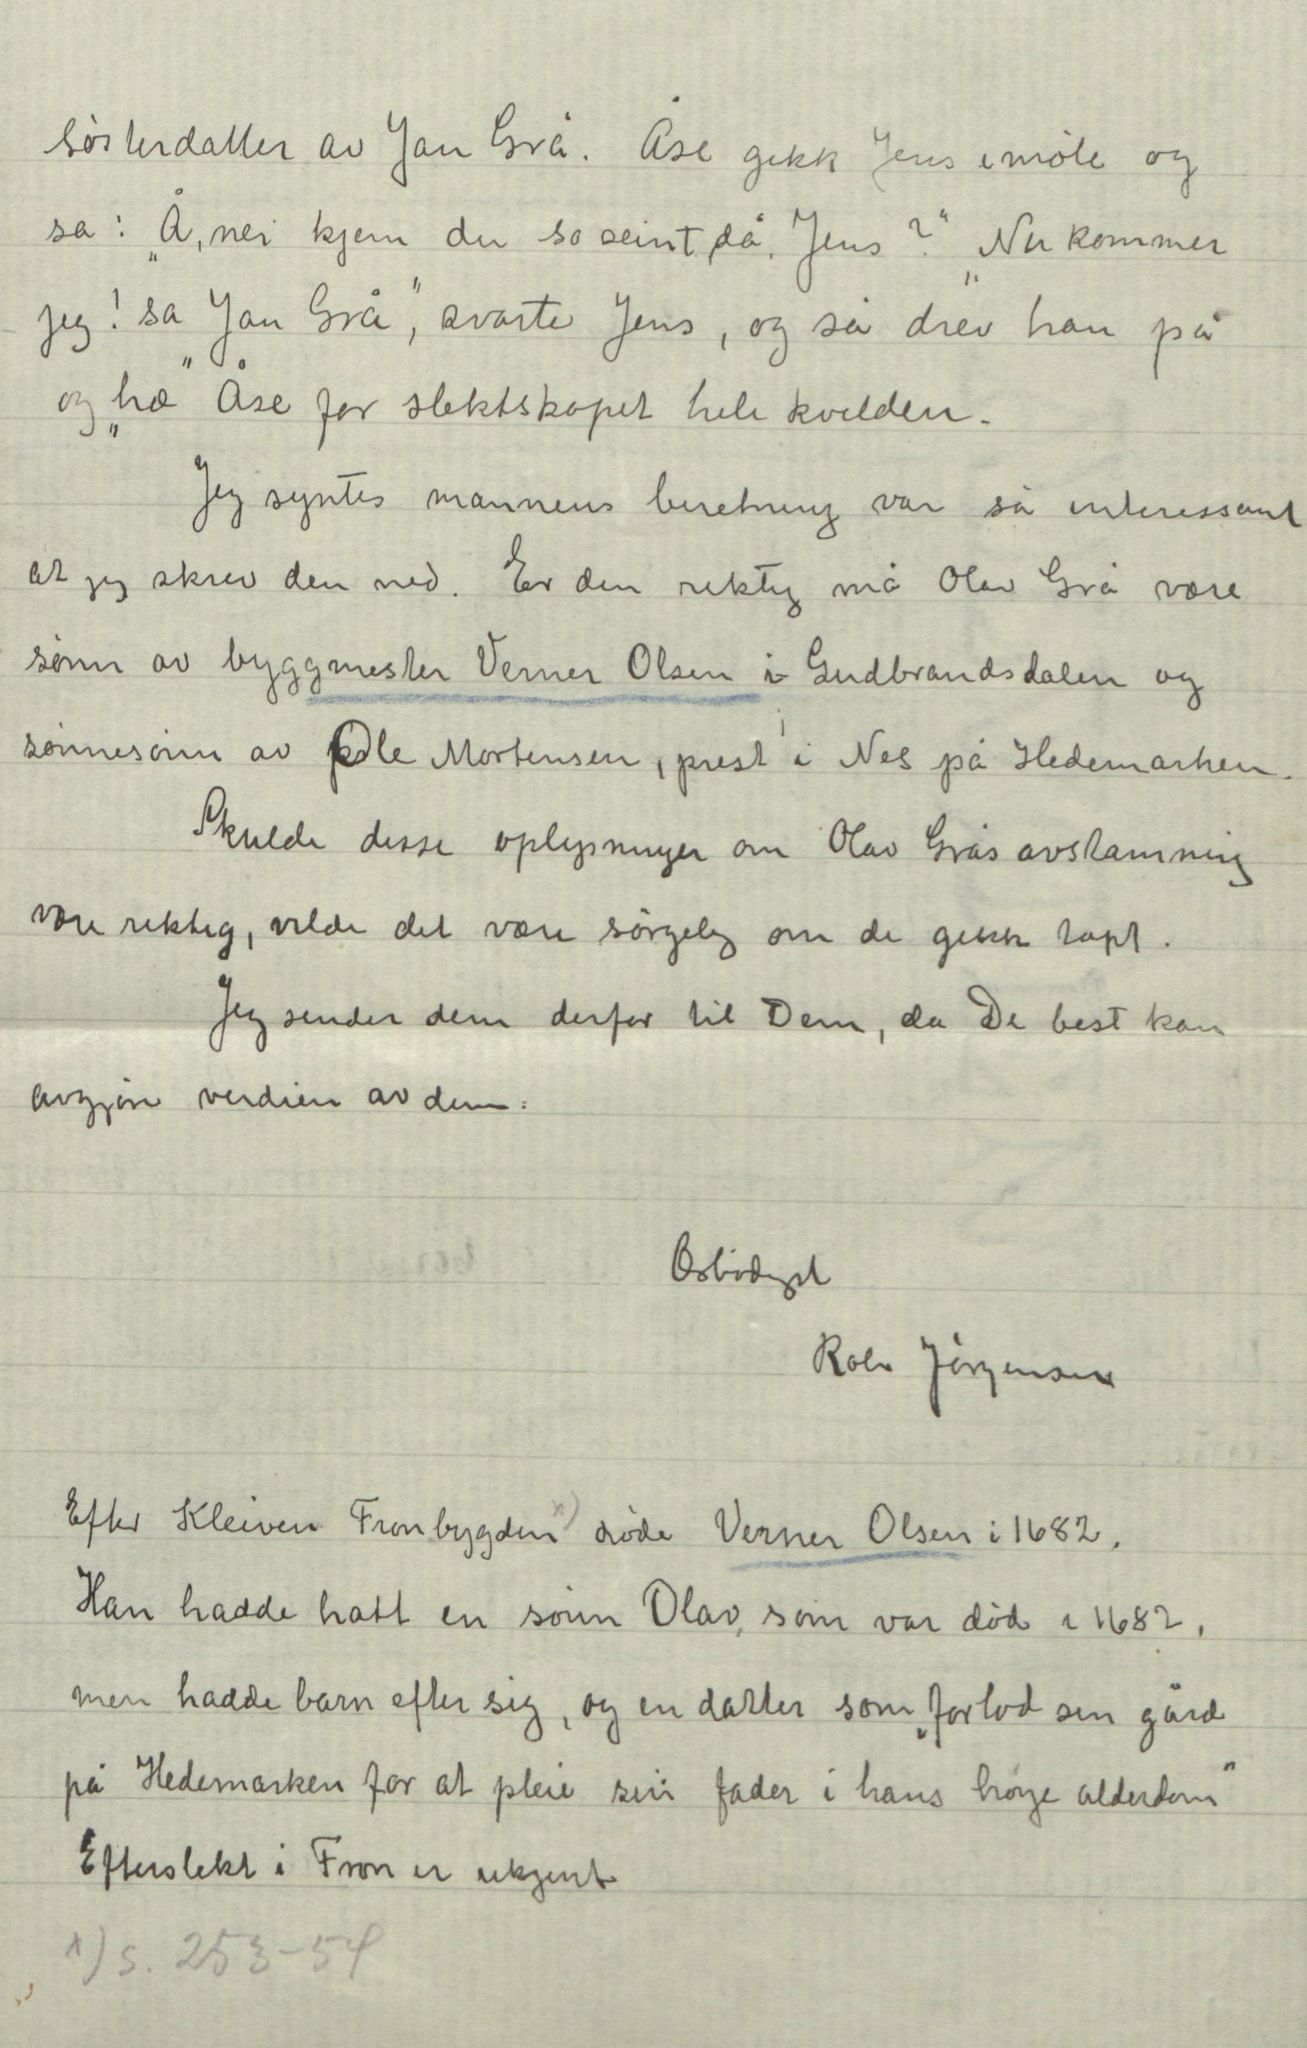 Sösterdatter av Jan Grå. Åse gikk Jens imöte og
sa: „Å, nei kjem du so seint då, Jens?" „Nu kommer
jeg! sa Jan Grå", svarte Jens, og så drev han på
og „hæ" Åse for slektskapet hele kvelden.
Jeg syntes mannens beretning var så interessant
at jeg skrev den ned. Er den riktig må Olav Grå være
sönn av byggmester Verner Olsen i Gudbrandsdalen og
sönnesönn av Ole Mortensen, prest i Nes på Hedemarken.
Skulde disse oplysninger om Olav Grås avstamning
være riktig, vilde det være sörgelig om de gikk tapt.
Jeg sender dem derfor til Dem, da De best kan
avgjöre verdien av dem.
Ærbödigst
Rolv Jörgensen
Efter Kleiven Fronbygden x) döde Verner Olsen i 1682.
Han hadde hatt en sönn Olav, som var död i 1682,
men hadde barn efter sig, og en datter som „forlod sin gård
på Hedemarken for at pleie sin fader i hans höye alderdom"
Efterslekt i Fron er ukjent
x) s. 253-54